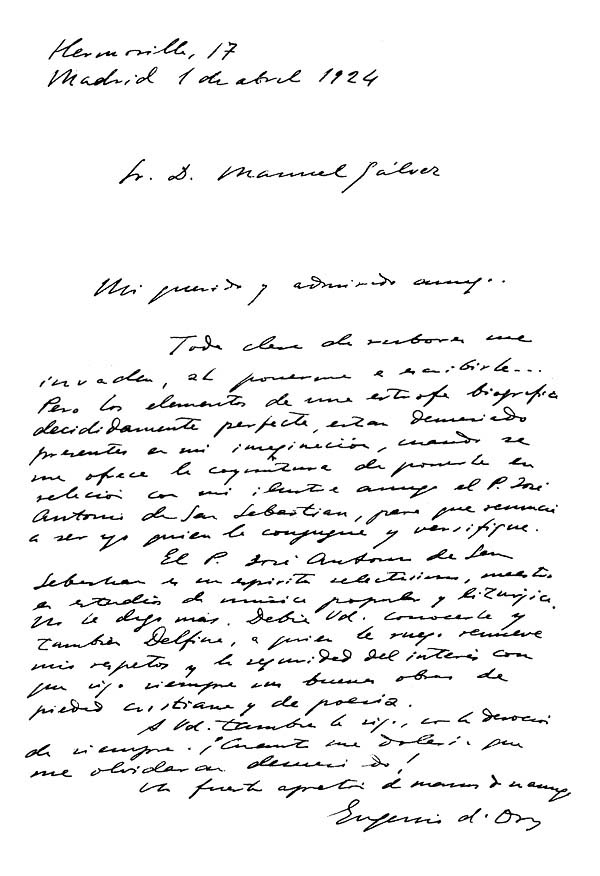 Hermosilla, 17
Madrid 1 de abril 1924
Sr. D. Manuel Gálvez
Mi querido y admirado amigo..
Toda clase de rubores me
invaden, al ponerme a escribirle...
Pero los elementos de una estrofa biografia
decididamente perfecta, estan demasiado
presentes en mi imaginación, cuando se
me ofrece la coyuntura de ponerle en
relación con mi ilustre amigo el P. José
Antonio de San Sebastian, para que renuncie
a ser yo quien la conjugue y versifique.
El P. José Antonio de San
Sebastian es un espiritu selectisimo, maestro
en estudios de música popular y liturgica.
No le digo más. Debia Vd. conocerle y
tambien Delfina, a quien le ruego renueve
mis respetos y la seguridad del interés con
que sigo siempre sus buenas obras de
piedad cristiana y de poesia.
A Vd. tambien le sigo, con la devoción
de siempre. ¡Cuanto me doleria que
me olvidaran demasiado!
Un fuerte apretón de manos de su amigo
Eugenio d'Ors